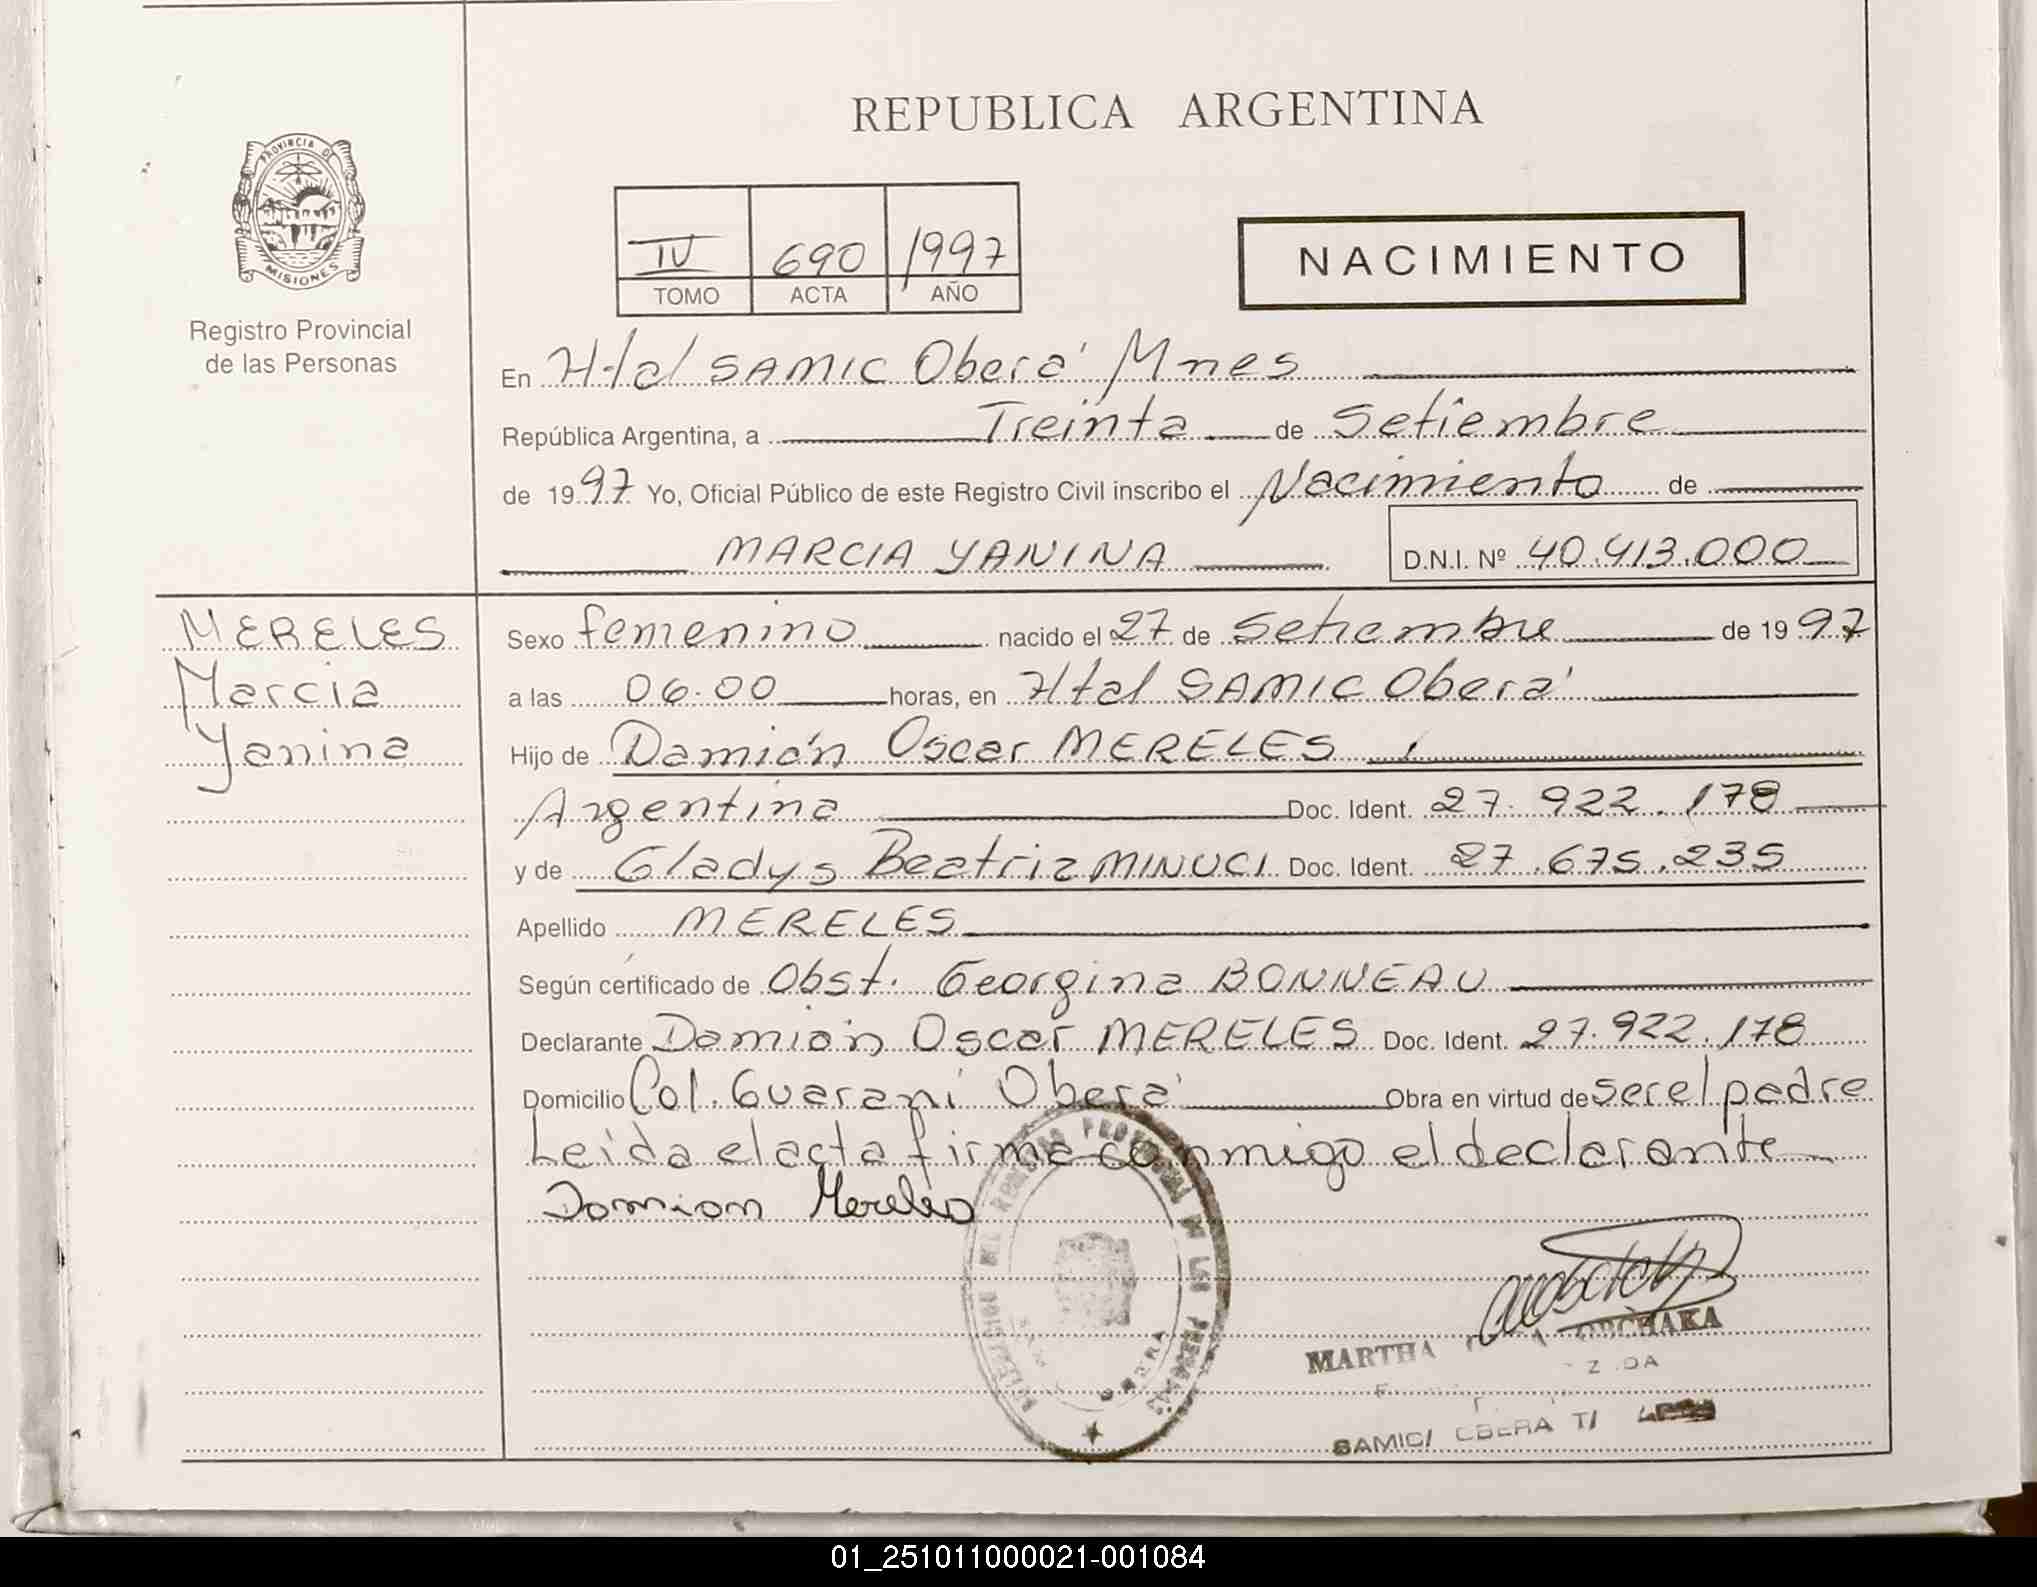 REPUBLICA ARGENTINA
PROVINCIA DE
MISIONES
Registro Provincial
de las Personas
IV 690 1997
TOMO ACTA AÑO
NACIMIENTO
En Htal SAMIC Oberá Mnes
República Argentina, a Treinta de Setiembre
de 1997 Yo, Oficial Público de este Registro Civil inscribo el Nacimiento de
MARCIA YANINA D.N.I. Nº 40.413.000
MERELES
Marcia
Yanina
Sexo femenino nacido el 27 de Setiembre de 1997
a las 06.00 horas, en Htal SAMIC Oberá
Hijo de Damián Oscar MERELES
Argentina Doc. Ident. 27.922.178
y de Gladys Beatriz MINUCI Doc. Ident. 27.675.235
Apellido MERELES
Según certificado de Obst. Georgina BONNEAU
Declarante Damián Oscar MERELES Doc. Ident. 27.922.178
Domicilio Col. Guaraní Oberá Obra en virtud de ser el padre
Leída el acta firma conmigo el declarante
Damian Mereles
MARTHA
SAMIC/ OBERA
01_251011000021-001084